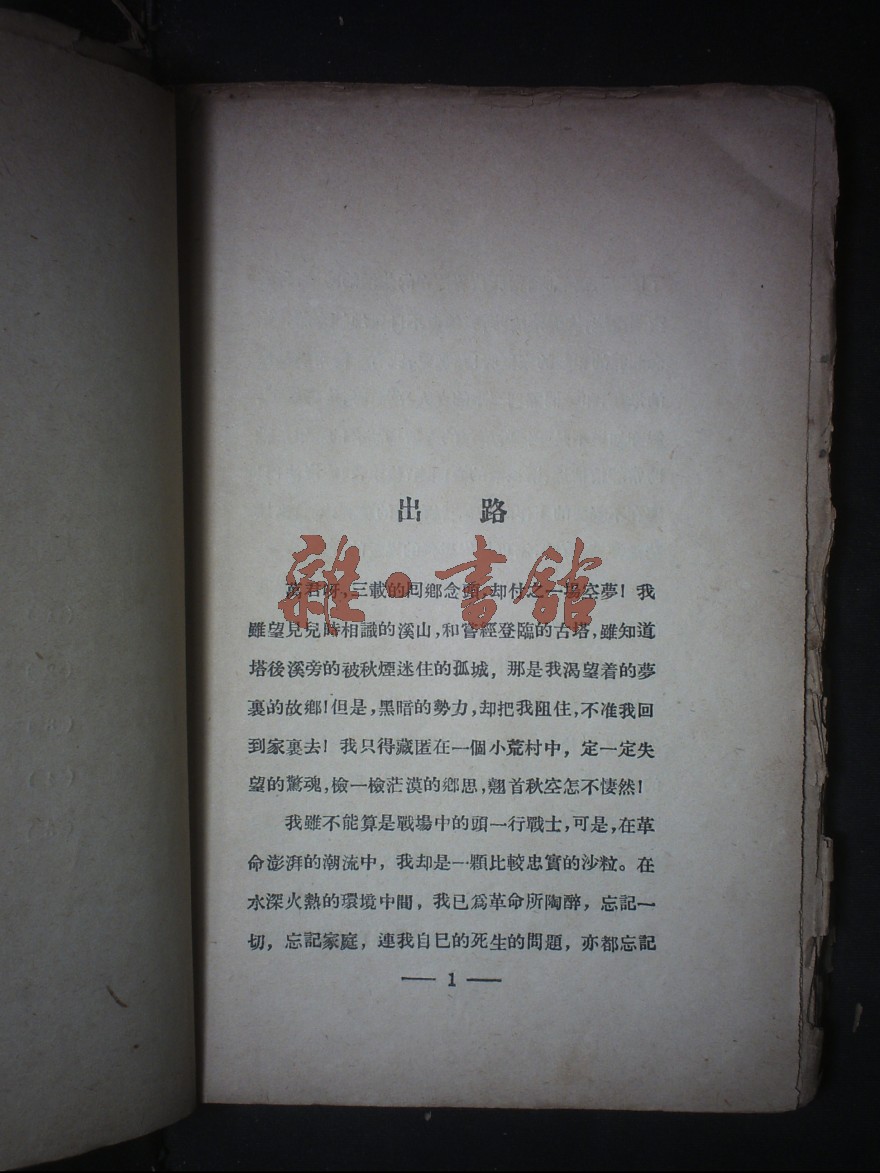 出路
萬君呀,三載的回鄉念頭,却付之一場空夢!我
雖望見兒時相識的溪山,和嘗經登臨的古塔,雖知道
塔後溪旁的被秋煙迷住的孤城,那是我渴望着的夢
裏的故鄉!但是,黑暗的勢力,却把我阻住,不准我回
到家裏去!我只得藏匿在一個小荒村中,定一定失
望的驚魂,檢一檢茫漠的鄉思,翹首秋空怎不悽然!
我雖不能算是戰場中的頭一行戰士,可是,在革
命澎湃的潮流中,我却是一顆比較忠實的沙粒。在
水深火熱的環境中間,我已爲革命所陶醉,忘記一
切,忘記家庭,連我自巳的死生的問題,亦都忘記
— 1 —
雜·書館